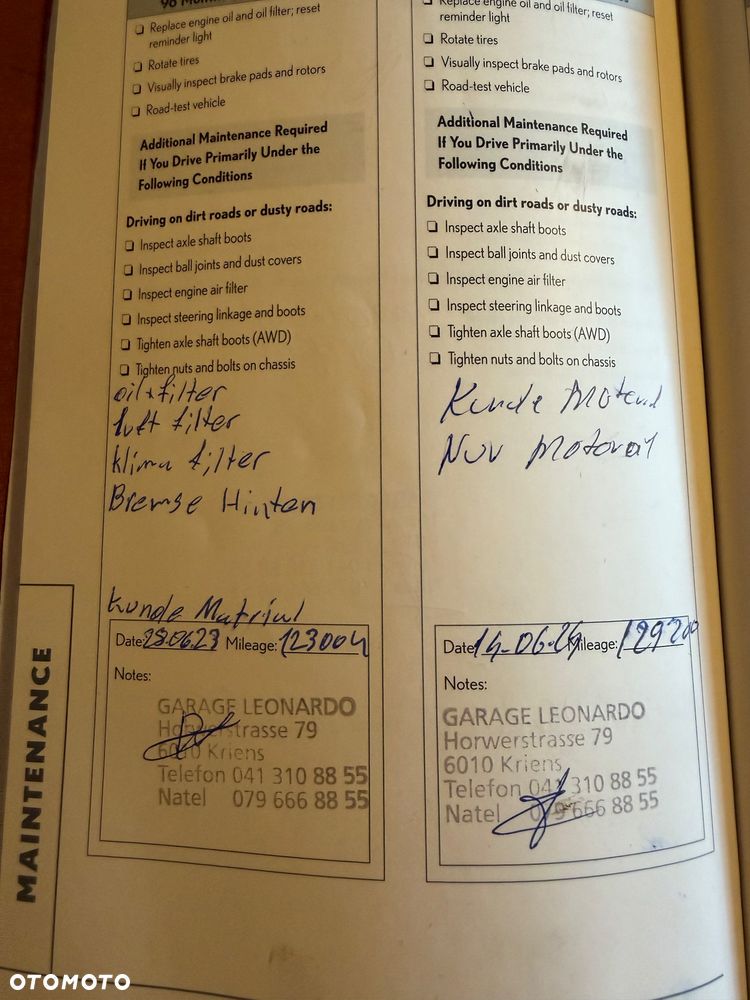 96
Replace engine oil and oil filter; reset
reminder light
Rotate tires
Visually inspect brake pads and rotors
Road-test vehicle
Additional Maintenance Required
If You Drive Primarily Under the
Following Conditions
Driving on dirt roads or dusty roads:
Inspect axle shaft boots
Inspect ball joints and dust covers
Inspect engine air filter
Inspect steering linkage and boots
Tighten axle shaft boots (AWD)
Tighten nuts and bolts on chassis
oil+filter
luft filter
klima filter
Bremse Hinten
kunde Matrial
Date: 28.06.23 Mileage: 123004
Notes:
GARAGE LEONARDO
Horwerstrasse 79
6010 Kriens
Telefon 041 310 88 55
Natel 079 666 88 55
Replace engine oil and oil filter; reset
reminder light
Rotate tires
Visually inspect brake pads and rotors
Road-test vehicle
Additional Maintenance Required
If You Drive Primarily Under the
Following Conditions
Driving on dirt roads or dusty roads:
Inspect axle shaft boots
Inspect ball joints and dust covers
Inspect engine air filter
Inspect steering linkage and boots
Tighten axle shaft boots (AWD)
Tighten nuts and bolts on chassis
Kunde
Nur Motoroil
Date: 14-06.24 Mileage: 129200
Notes:
GARAGE LEONARDO
Horwerstrasse 79
6010 Kriens
Telefon 041 310 88 55
Natel 079 666 88 55
MAINTENANCE
OTOMOTO